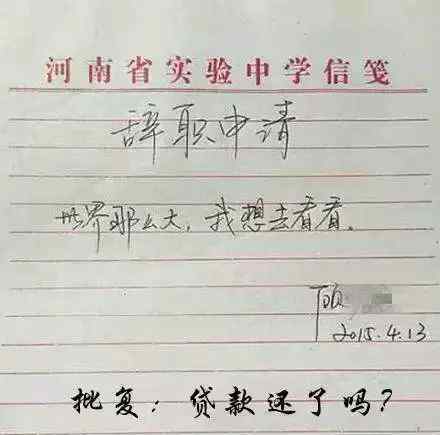 河南省实验中学信笺
辞职申请
世界那么大，我想去看看。
顾
2015.4.13
批复：贷款还了吗？